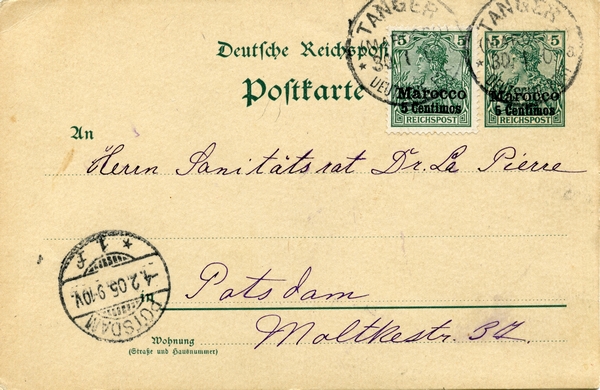 Deutsche Reichspost
Postkarte
TANGER
(MAROCCO)
30 1
DEUTSCHE
TANGER
30 1 0
5 5
Marocco
5 Centimos
REICHSPOST
5 5
Marocco
5 Centimos
REICHSPOST
An
Herrn Sanitätsrat Dr. La Pierre
* 1 f
4.2.05.9-10V.
POTSDAM
in
Potsdam
Wohnung
(Straße und Hausnummer)
Moltkestr. 37.